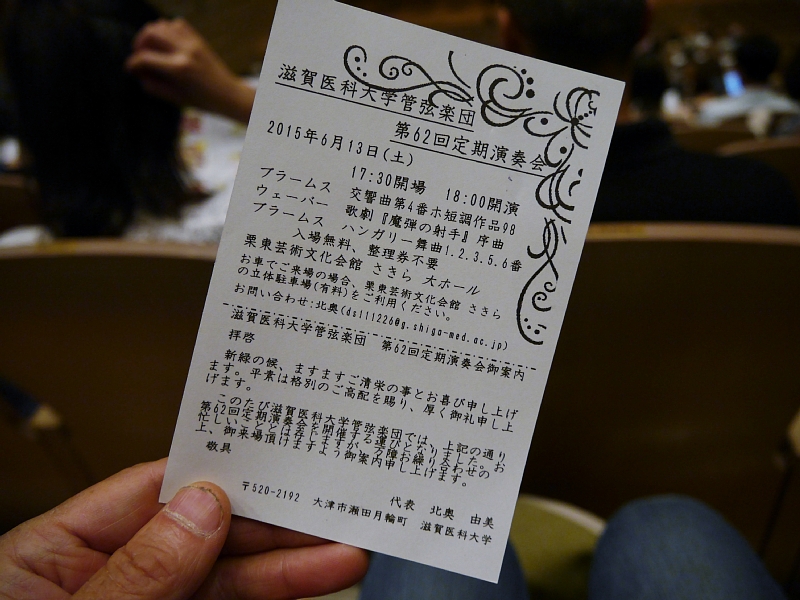 滋賀医科大学管弦楽団
第62回定期演奏会
2015年6月13日(土)
17:30開場 18:00開演
ブラームス 交響曲第4番ホ短調作品98
ウェーバー 歌劇『魔弾の射手』序曲
ブラームス ハンガリー舞曲1.2.3.5.6番
入場無料、整理券不要
栗東芸術文化会館 さきら 大ホール
お車でご来場の場合、栗東芸術文化会館 さきら
の立体駐車場(有料)をご利用ください。
お問い合わせ:北奥(ds111226@g.shiga-med.ac.jp)
滋賀医科大学管弦楽団 第62回定期演奏会御案内
拝啓
新緑の候、ますますご清栄の事とお喜び申し上げ
ます。平素は格別のご高配を賜り、厚く御礼申し上
げます。
このたび滋賀医科大学管弦楽団では、上記の通り
第62回定期演奏会を開催する運びとなりました。お
忙しいこととは存じますが、万障お繰り合わせの
上、御来場頂けますよう御案内申し上げます。
敬具
代表 北奥 由美
〒520-2192 大津市瀬田月輪町 滋賀医科大学